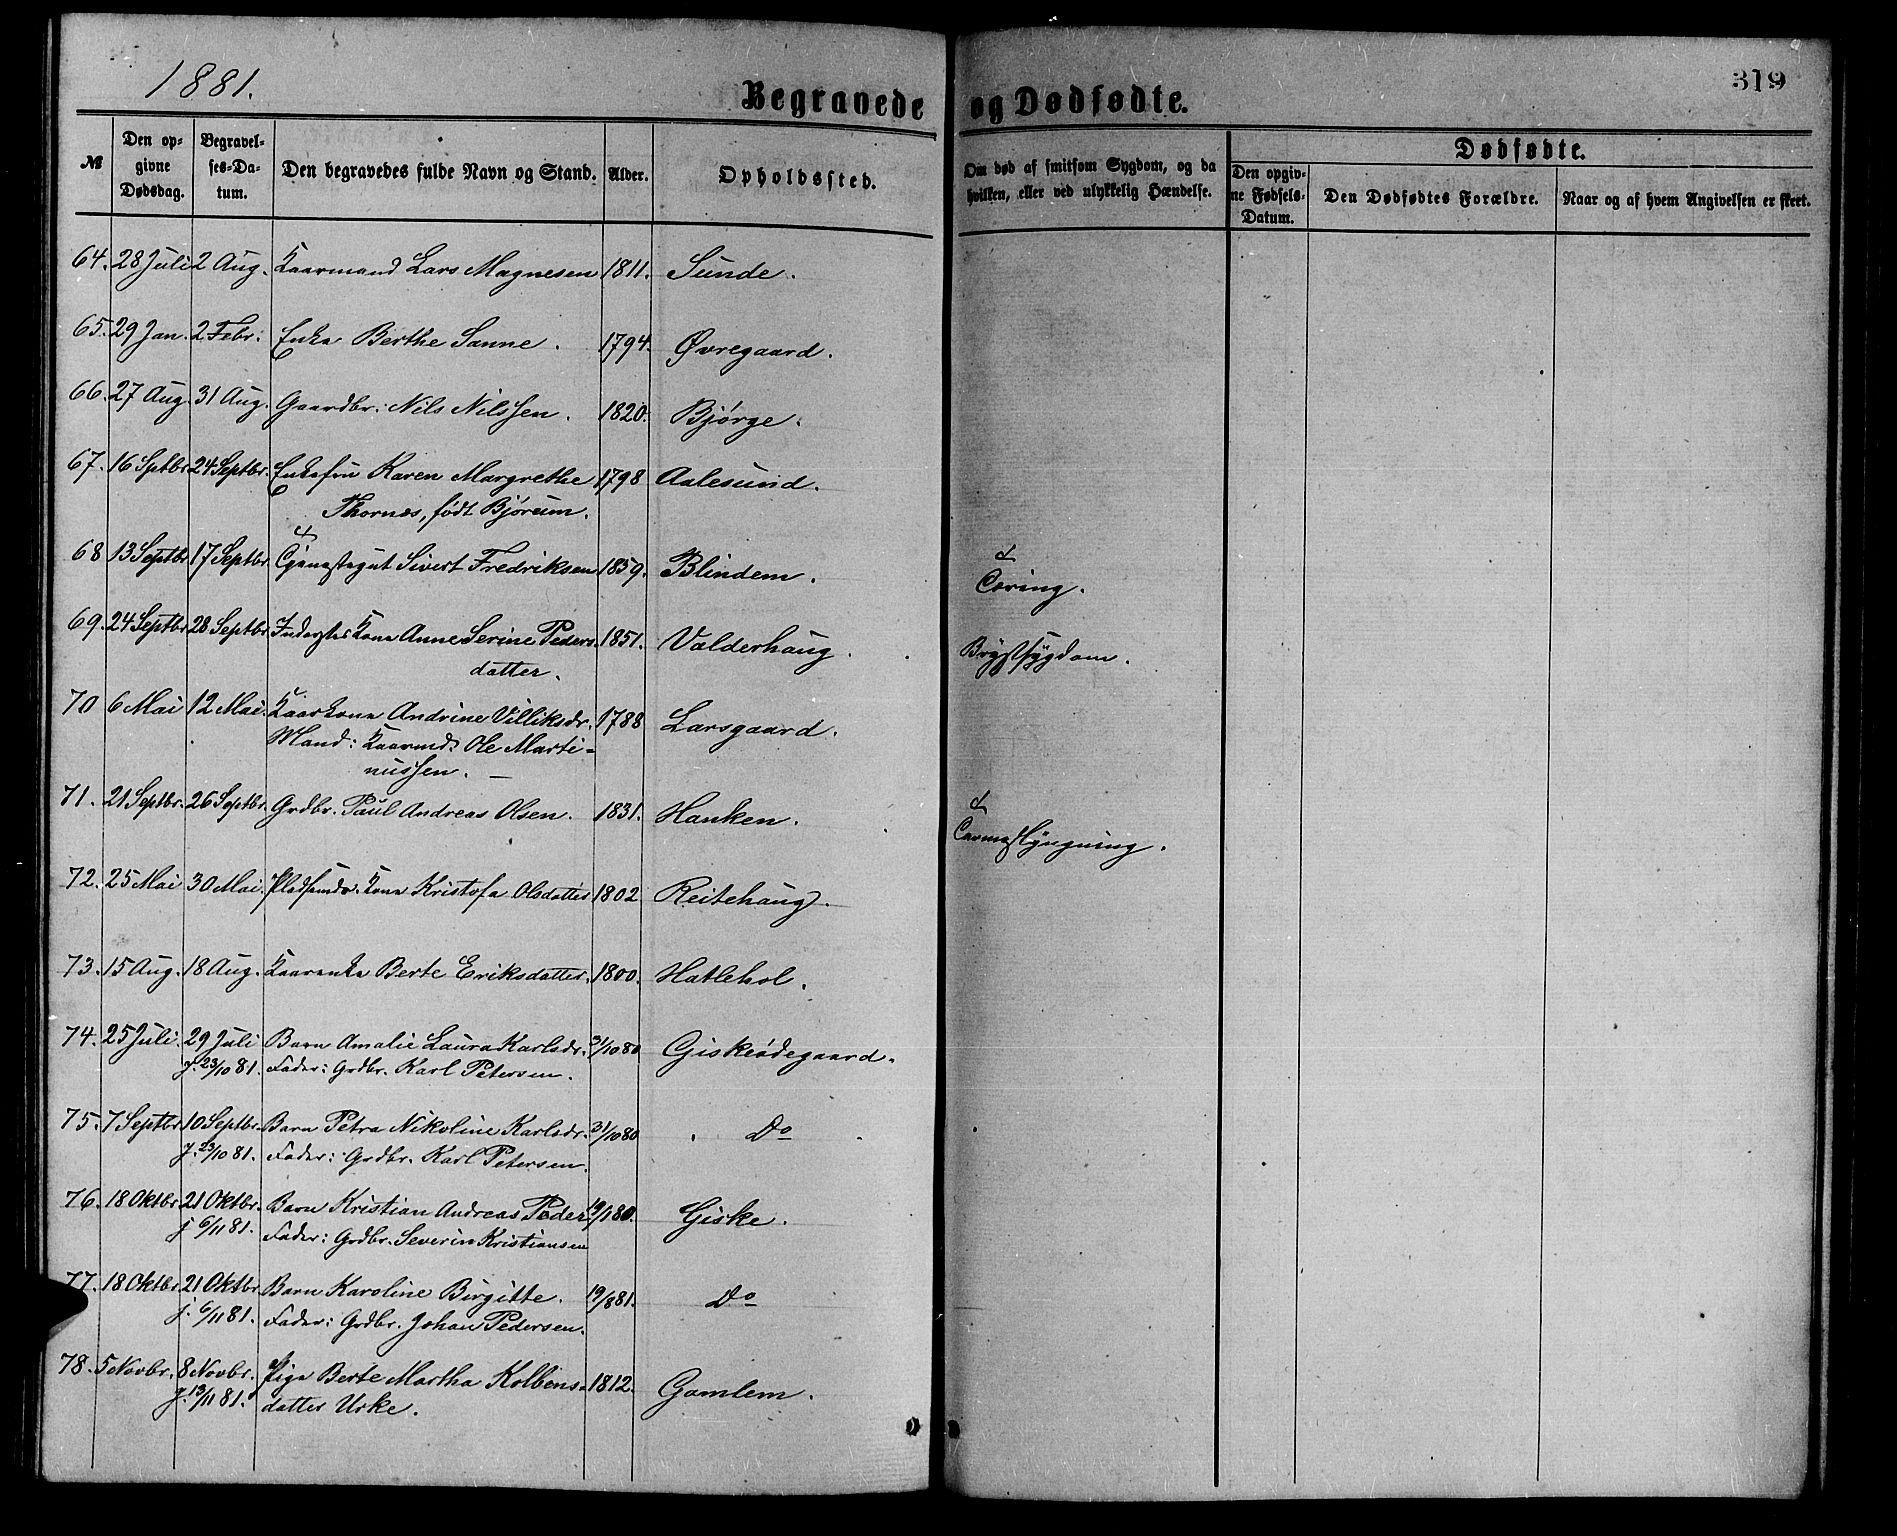 1881.
Begravede og Dødfødte.
319
№
Den opgivne Dødsdag.
Begravelses-Datum.
Den begravedes fulde Navn og Stand.
Alder.
Opholdssted.
Om død af smitsom Sygdom, og da hvilken, eller ved ulykkelig Hændelse.
Dødfødte.
Den opgivne Fødsels-Datum.
Den Dødfødtes Forældre.
Naar og af hvem Angivelsen er skeet.
64. 28 Juli 2 Aug. Kaarmand Lars Magnesen 1811. Sunde.
65. 29 Jan. 2 Febr. Enke Berthe Sanne. 1794. Øvregaard.
66. 27 Aug. 31 Aug. Gaardbr. Nils Nilssen. 1820. Bjørge.
67. 16 Sptbr. 24 Septbr. Enkefru Karen Margrethe 1798 Aalesund.
Thornes, født Bjørum.
68 13 Septbr 17 Septbr. Tjenestegut Sivert Fredriksen 1859. Blindem. Tæring.
69. 24 Septbr 28 Septbr. Inderstes Kone Anne Serine Peders 1851. Valderhaug. Brystsygdom.
datter.
70 6 Mai 12 Mai. Kaarkone Andrine Villiksdr. 1788 Larsgaard.
Mand: Kaarmd. Ole Marti-
nussen.
71. 21 Septbr. 26 Septbr. Grdbr. Paul Andreas Olsen. 1831. Hanken. Tarmeslyngning.
72. 25 Mai 30 Mai. Pladsmds. Kone Kristofa Olsdatter 1802 Reitehaug.
73. 15 Aug. 18 Aug. Kaarenke Berte Eriksdatter. 1800. Hatlehol.
74. 25 Juli. 29 Juli Barn Amalie Laura Karlsdr. 31/10 80 Giskeødegaard.
j. 23/10 81. Fader: Grdbr. Karl Petersen.
75. 7 Septbr 10 Septbr. Barn Petra Nikoline Karlsdr. 31/10 80 Do
j. 23/10 81. Fader: Grdbr. Karl Petersen.
76. 18 Oktbr. 21 Oktbr. Barn Kristian Andreas Peder 19/1 80. Giske.
j. 6/11 81. Fader: Grdbr. Severin Kristiansen
77. 18 Oktbr. 21 Oktbr Barn Karoline Birgitte. 19/8 81. Do
j. 6/11 81. Fader: Grdbr. Johan Pedersen.
78. 5 Novbr. 8 Novbr. Pige Berte Martha Kolbens- 1812. Gamlem.
j. 13/11 81. datter Urke.